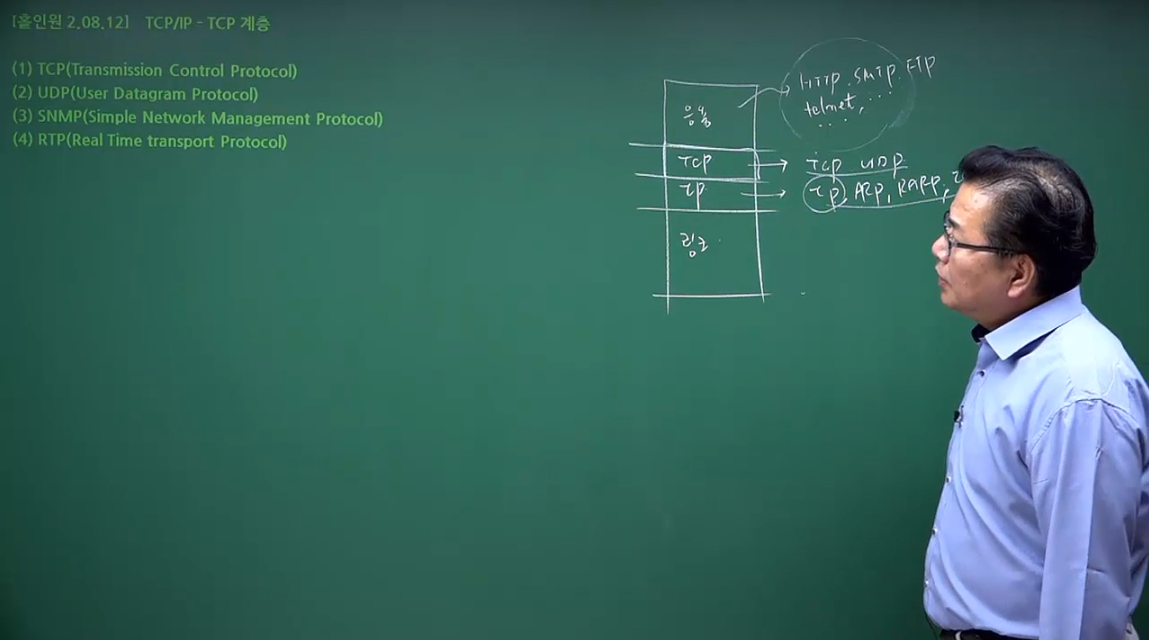 [올인원 2.08.12] TCP/IP - TCP 계층
(1) TCP(Transmission Control Protocol)
(2) UDP(User Datagram Protocol)
(3) SNMP(Simple Network Management Protocol)
(4) RTP(Real Time transport Protocol)
응용
HTTP. SMTP. FTP
telnet, ...
...
TCP
TCP UDP
IP
IP, ARP, RARP,
링크